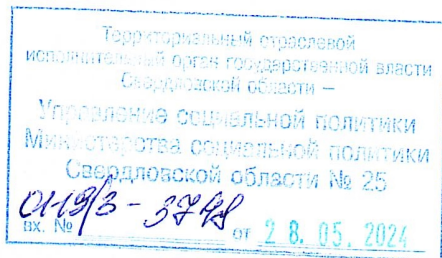 Территориальный отраслевой
исполнительный орган государственной власти
Свердловской области –
Управление социальной политики
Министерства социальной политики
Свердловской области № 25
вх. № 01-19/3-3748 от 28.05.2024